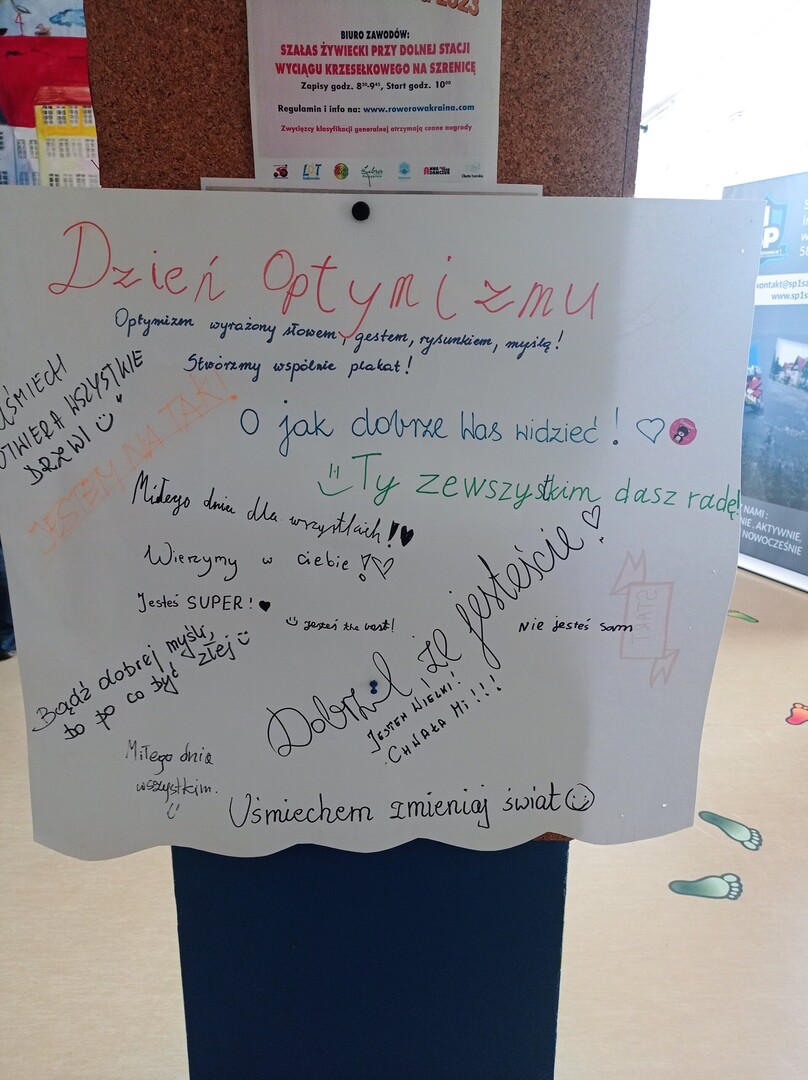 2023
BIURO ZAWODÓW:
SZAŁAS ŻYWIECKI PRZY DOLNEJ STACJI
WYCIĄGU KRZESEŁKOWEGO NA SZRENICĘ
Zapisy godz. 8³⁰-9⁴⁵, Start godz. 10⁰⁰
Regulamin i info na: www.rowerowakraina.com
Zwycięzcy klasyfikacji generalnej otrzymają cenne nagrody
Dzień Optymizmu
Optymizm wyrażony słowem, gestem, rysunkiem, myślą!
Stwórzmy wspólnie plakat!
UŚMIECH
OTWIERA WSZYSTKIE
DRZWI
JESTEM NA TAK!
O jak dobrze Was widzieć!
Ty zewszystkim dasz radę!
Miłego dnia dla wszystkich!
Wierzymy w ciebie!
Jesteś SUPER!
jesteś the best!
Nie jesteś sam
START
Bądź dobrej myśli,
bo po co być złej
Dobrze że jesteście!
JESTEM WIELKI!
CHWAŁA MI!!!
Miłego dnia
wszystkim.
Uśmiechem zmieniaj świat
kontakt@sp1s
www.sp1s
NAMI:
NIE, AKTYWNIE,
NOWOCZEŚNIE